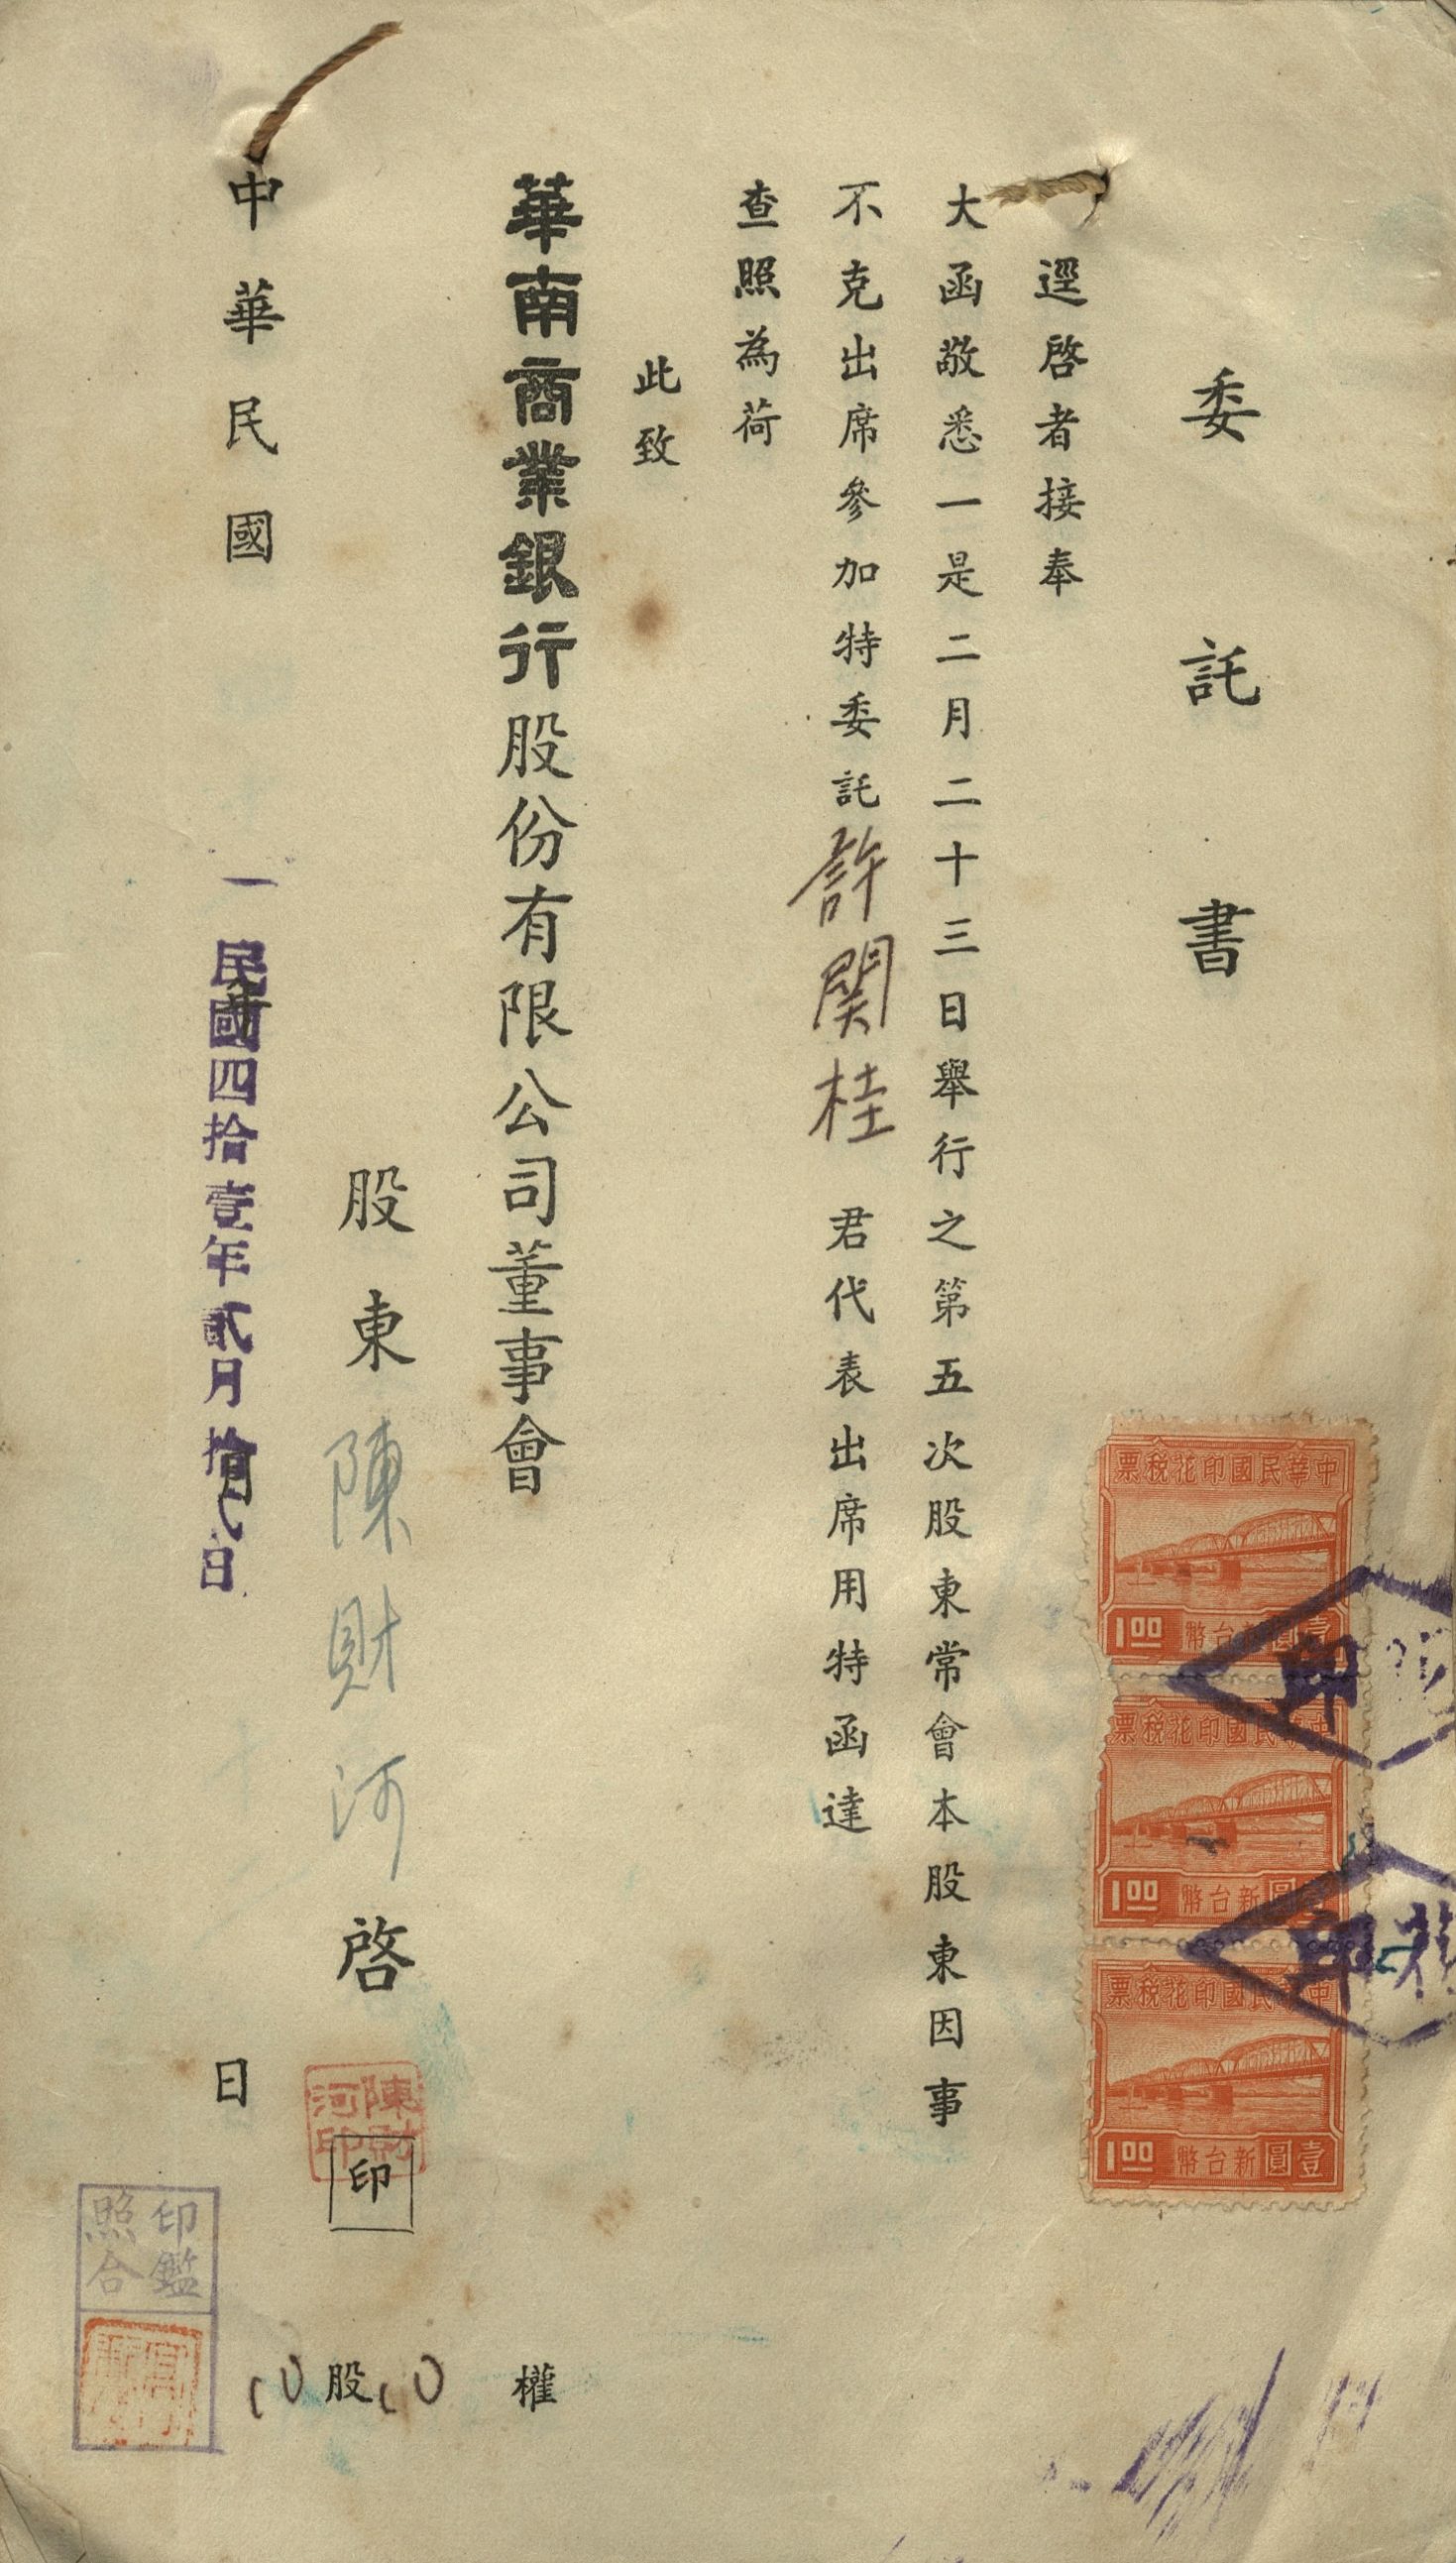 委託書
逕啓者接奉
大函敬悉一是二月二十三日舉行之第五次股東常會本股東因事
不克出席參加特委託許関桂君代表出席用特函達
查照為荷
此致
華南商業銀行股份有限公司董事會
股東陳財河啓
印
陳財河印
權
10股10
中華民國
日
民國四拾壹年貳月拾
日
印鑑
照合
中華民國印花稅票
1.00
幣台新圓壹
中華民國印花稅票
1.00
幣台新圓壹
中華民國印花稅票
1.00
幣台新圓壹
印
印